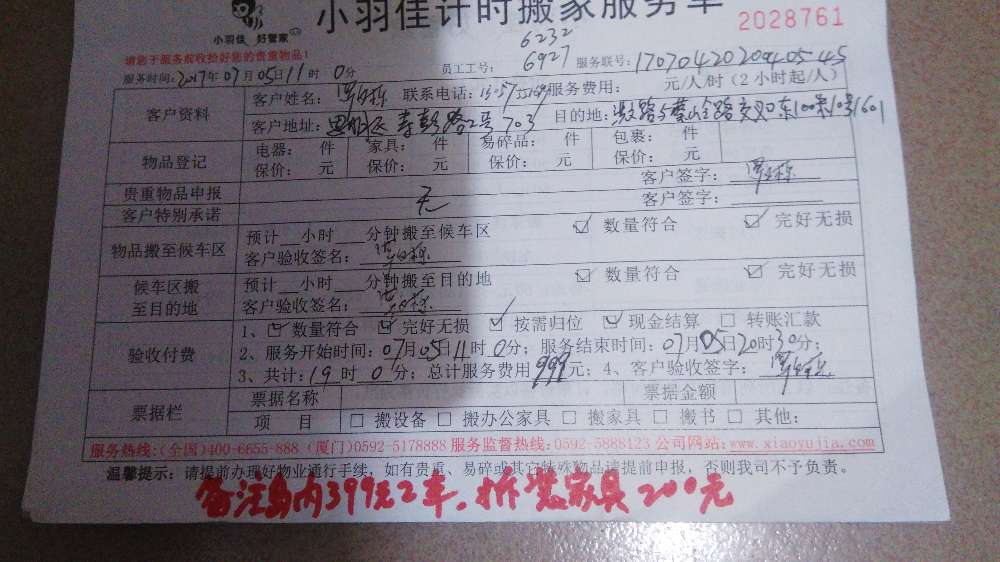 小羽佳 好管家
小羽佳计时搬家服务单
2028761
请您于服务前收拾好您的贵重物品!
6232
6927
服务时间:2017年07月05日11时0分 员工工号: 服务联号:
客户资料
客户姓名: 联系电话: 服务费用: 元/人/时(2小时起/人)
客户地址: 703 目的地:
物品登记
电器: 件 家具: 件 易碎品: 件 包裹: 件
保价: 元 保价: 元 保价: 元 保价: 元
贵重物品申报 无 客户签字:
客户特别承诺 客户签字:
物品搬至候车区
预计__小时___分钟搬至候车区 数量符合 完好无损
客户验收签名:
候车区搬至目的地
预计__小时___分钟搬至目的地 数量符合 完好无损
客户验收签名:
验收付费
1、 数量符合 完好无损 按需归位 现金结算 转账汇款
2、服务开始时间:07月05日11时0分;服务结束时间:07月05日20时30分;
3、共计:19时0分;总计服务费用999元;4、客户验收签字:
票据栏
票据名称 票据金额
项 目 搬设备 搬办公家具 搬家具 搬书 其他:
服务热线:(全国)400-6655-888 (厦门)0592-5178888 服务监督热线:0592-5888123 公司网站:www.xiaoyujia.com
温馨提示:请提前办理好物业通行手续,如有贵重、易碎或其它特殊物品请提前申报,否则我司不予负责。
备注岛内399元2车.拆装家具200元